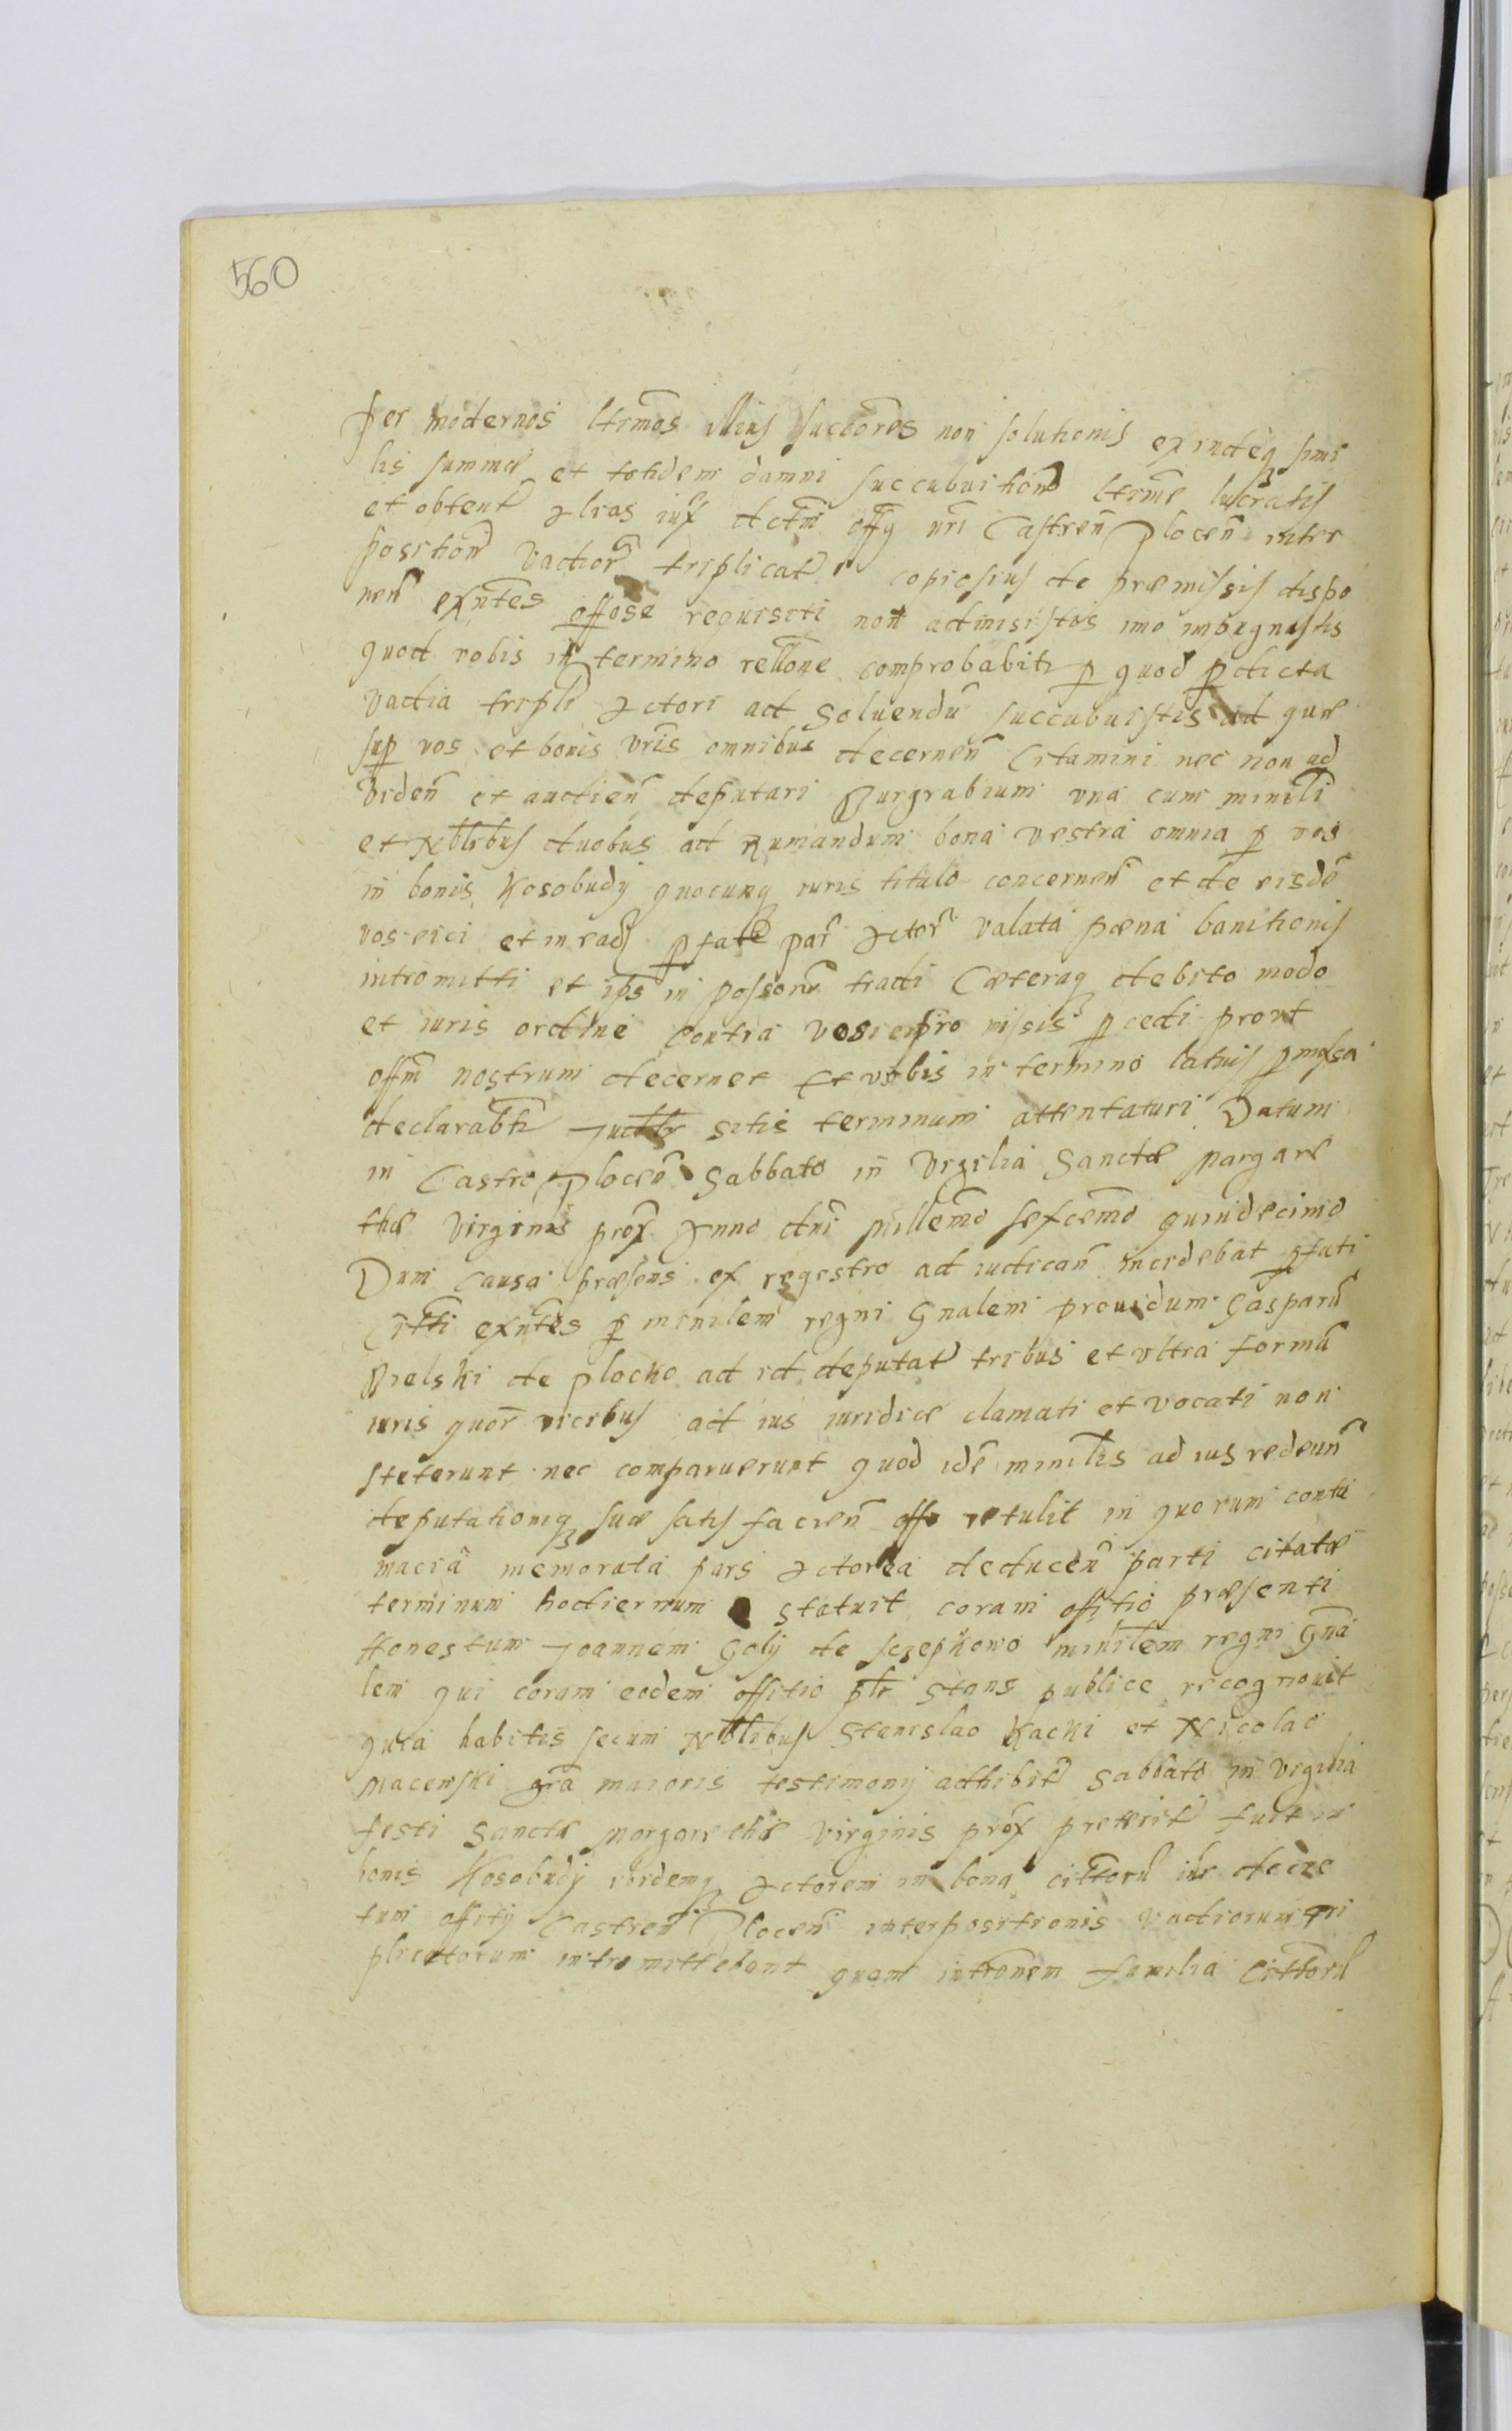 560
Per modernos ltimos illius succores non solutionis exindeq simi
lis summæ et totidem damni succubuitionē ltime lucratis
et obtent alias iux actm offy nri Castren Plocen inter
position vadior triplicat copiosius de præmissis dispo
nen exntes offose requisiti non admisistis imo impugnastis
quod vobis in termino rellone comprobabit p quod pdicta
vadia tripli Actori ad soluendū succubuistis ad quæ
sup vos et bonis vris omnibus decernen Citamini nec non ad
viden et audien deputari Burgrabium una cum ministli
et Nblibus duobus ad bona vestra omnia p vos
in bonis Kosobudy quocunq iuris titulo concernen et de eisdē
vos eici et in ead pfatē par Actor valata pæna banitionis
intromitti et ips in possonē tradi Cæteraq debito modo
et iuris ordine contra vos missis pcedi prout
offm nostrum decernet Et vobis in termino latius pmissa
declarabt Judtr sitis terminum attentaturi Datum
in Castro Plocen Sabbato in Vigilia Sanctæ Margare
thæ Virginis prox Anno dni millemo sexcemo quindecimo
Dum causa præsens ex regestro ad iudican incidebat pfati
Citti exntes p minilem regni Gnalem prouidum Gasparū
Bielski de Plocko ad id deputat tribus et ultra formā
iuris quor vicibus ad ius iuridice clamati et vocati non
steterunt nec comparuerunt quod idē minilis ad ius redeun
deputationiq suæ satis facien offo retulit in quorum contu
maciā memorata pars Actorea deducen parti citatæ
terminum hodiernum statuit coram offitio præsenti
Honestum Joannem Goly de Sczepkowo minilem regni Gna
lem qui coram eodem offitio plr stans publice recognouit
quia habitis secum Nblibus Stanislao Kacki et Nicolao
Macewski gra maioris testimony adhibit Sabbato in vigilia
festi Sanctæ Margarethæ Virginis prox præterit fuit in
bonis Kosobudy ibidemq Actorem in bona cittorū iux decre
tum offity Castren Plocen interpositionis vadiorum tri
plicatorum intromittebant quam intronem familia cittorū